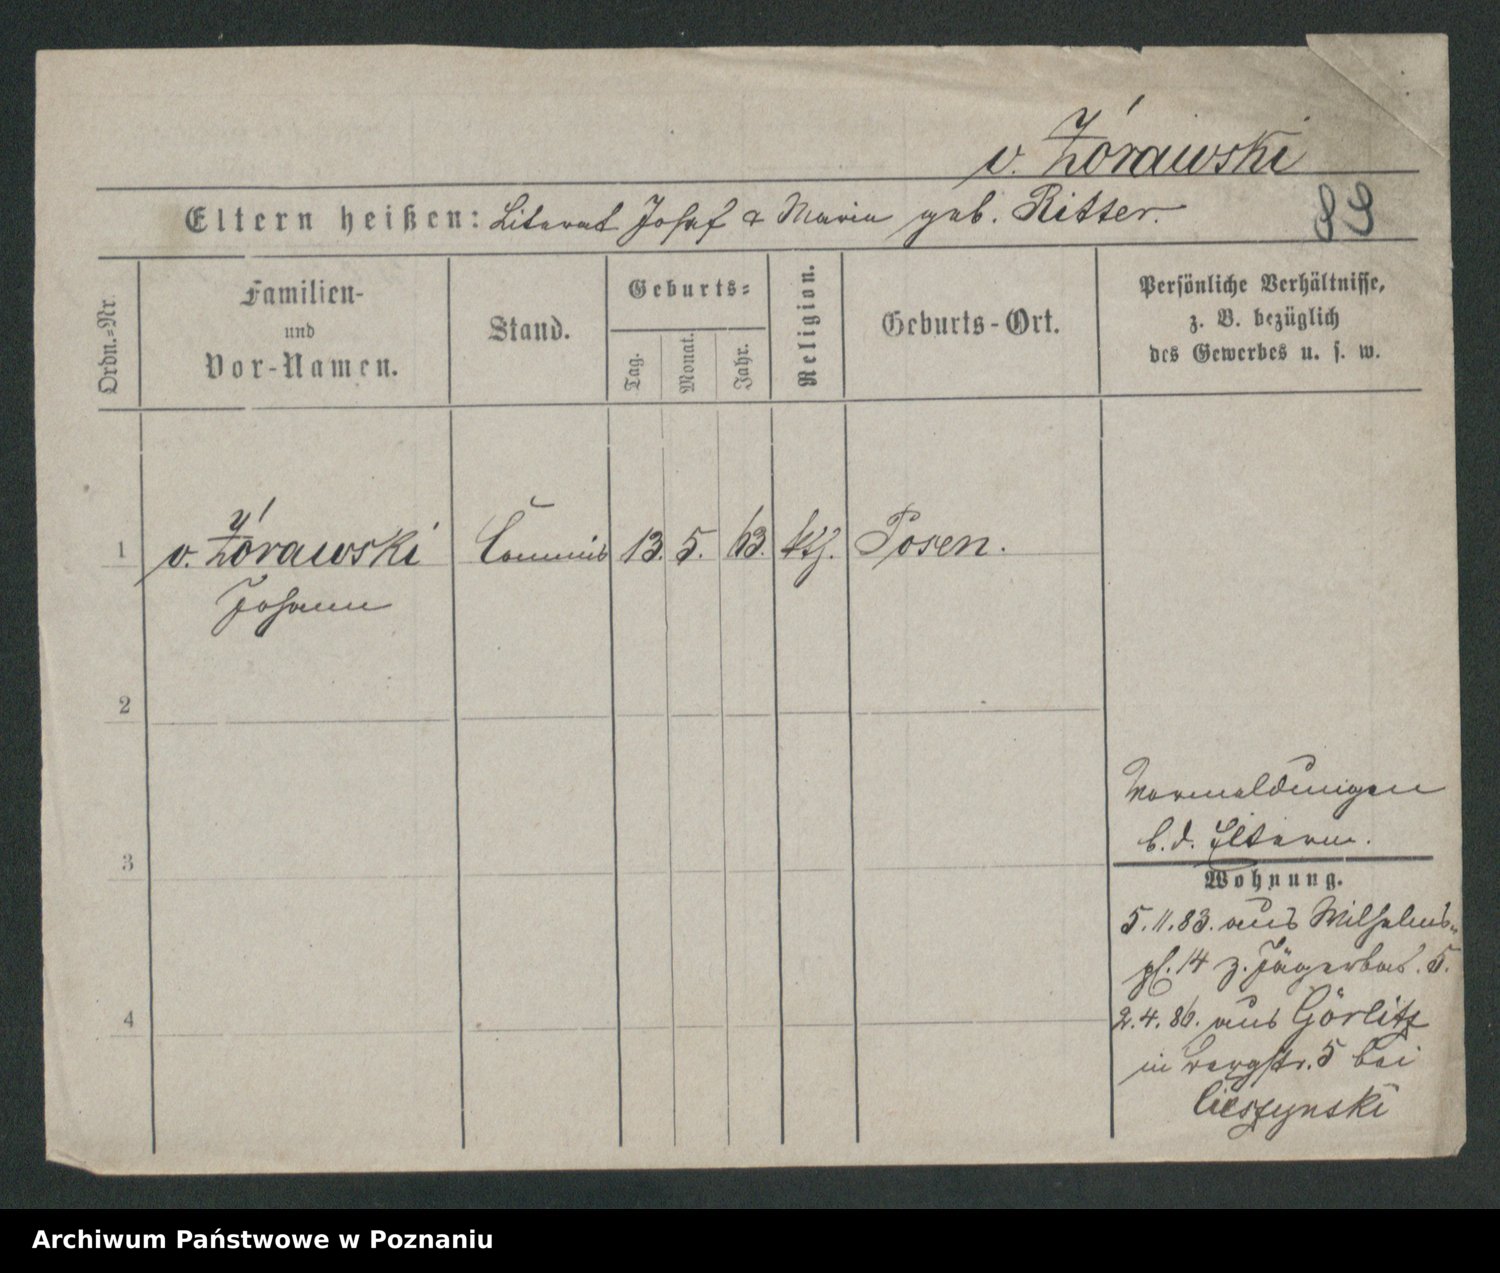 v. Żórawski
Eltern heißen: Literat Josef & Maria geb. Ritter.
89
Ordn.-Nr.
Familien-
und
Vor-Namen.
Stand.
Geburts-
Tag.
Monat.
Jahr.
Religion.
Geburts-Ort.
Persönliche Verhältnisse,
z. B. bezüglich
des Gewerbes u. s. w.
1 v. Żórawski Commis 13. 5. 63. kth. Posen.
Johann
2
3
4
Vormeldungen
b. d. Eltern.
Wohnung.
5.11.83. aus Wilhelms-
pl. 14 z. Jägerbat. 5.
2.4.86. aus Görlitz
in Bergstr. 5 bei
Cieszynski
Archiwum Państwowe w Poznaniu